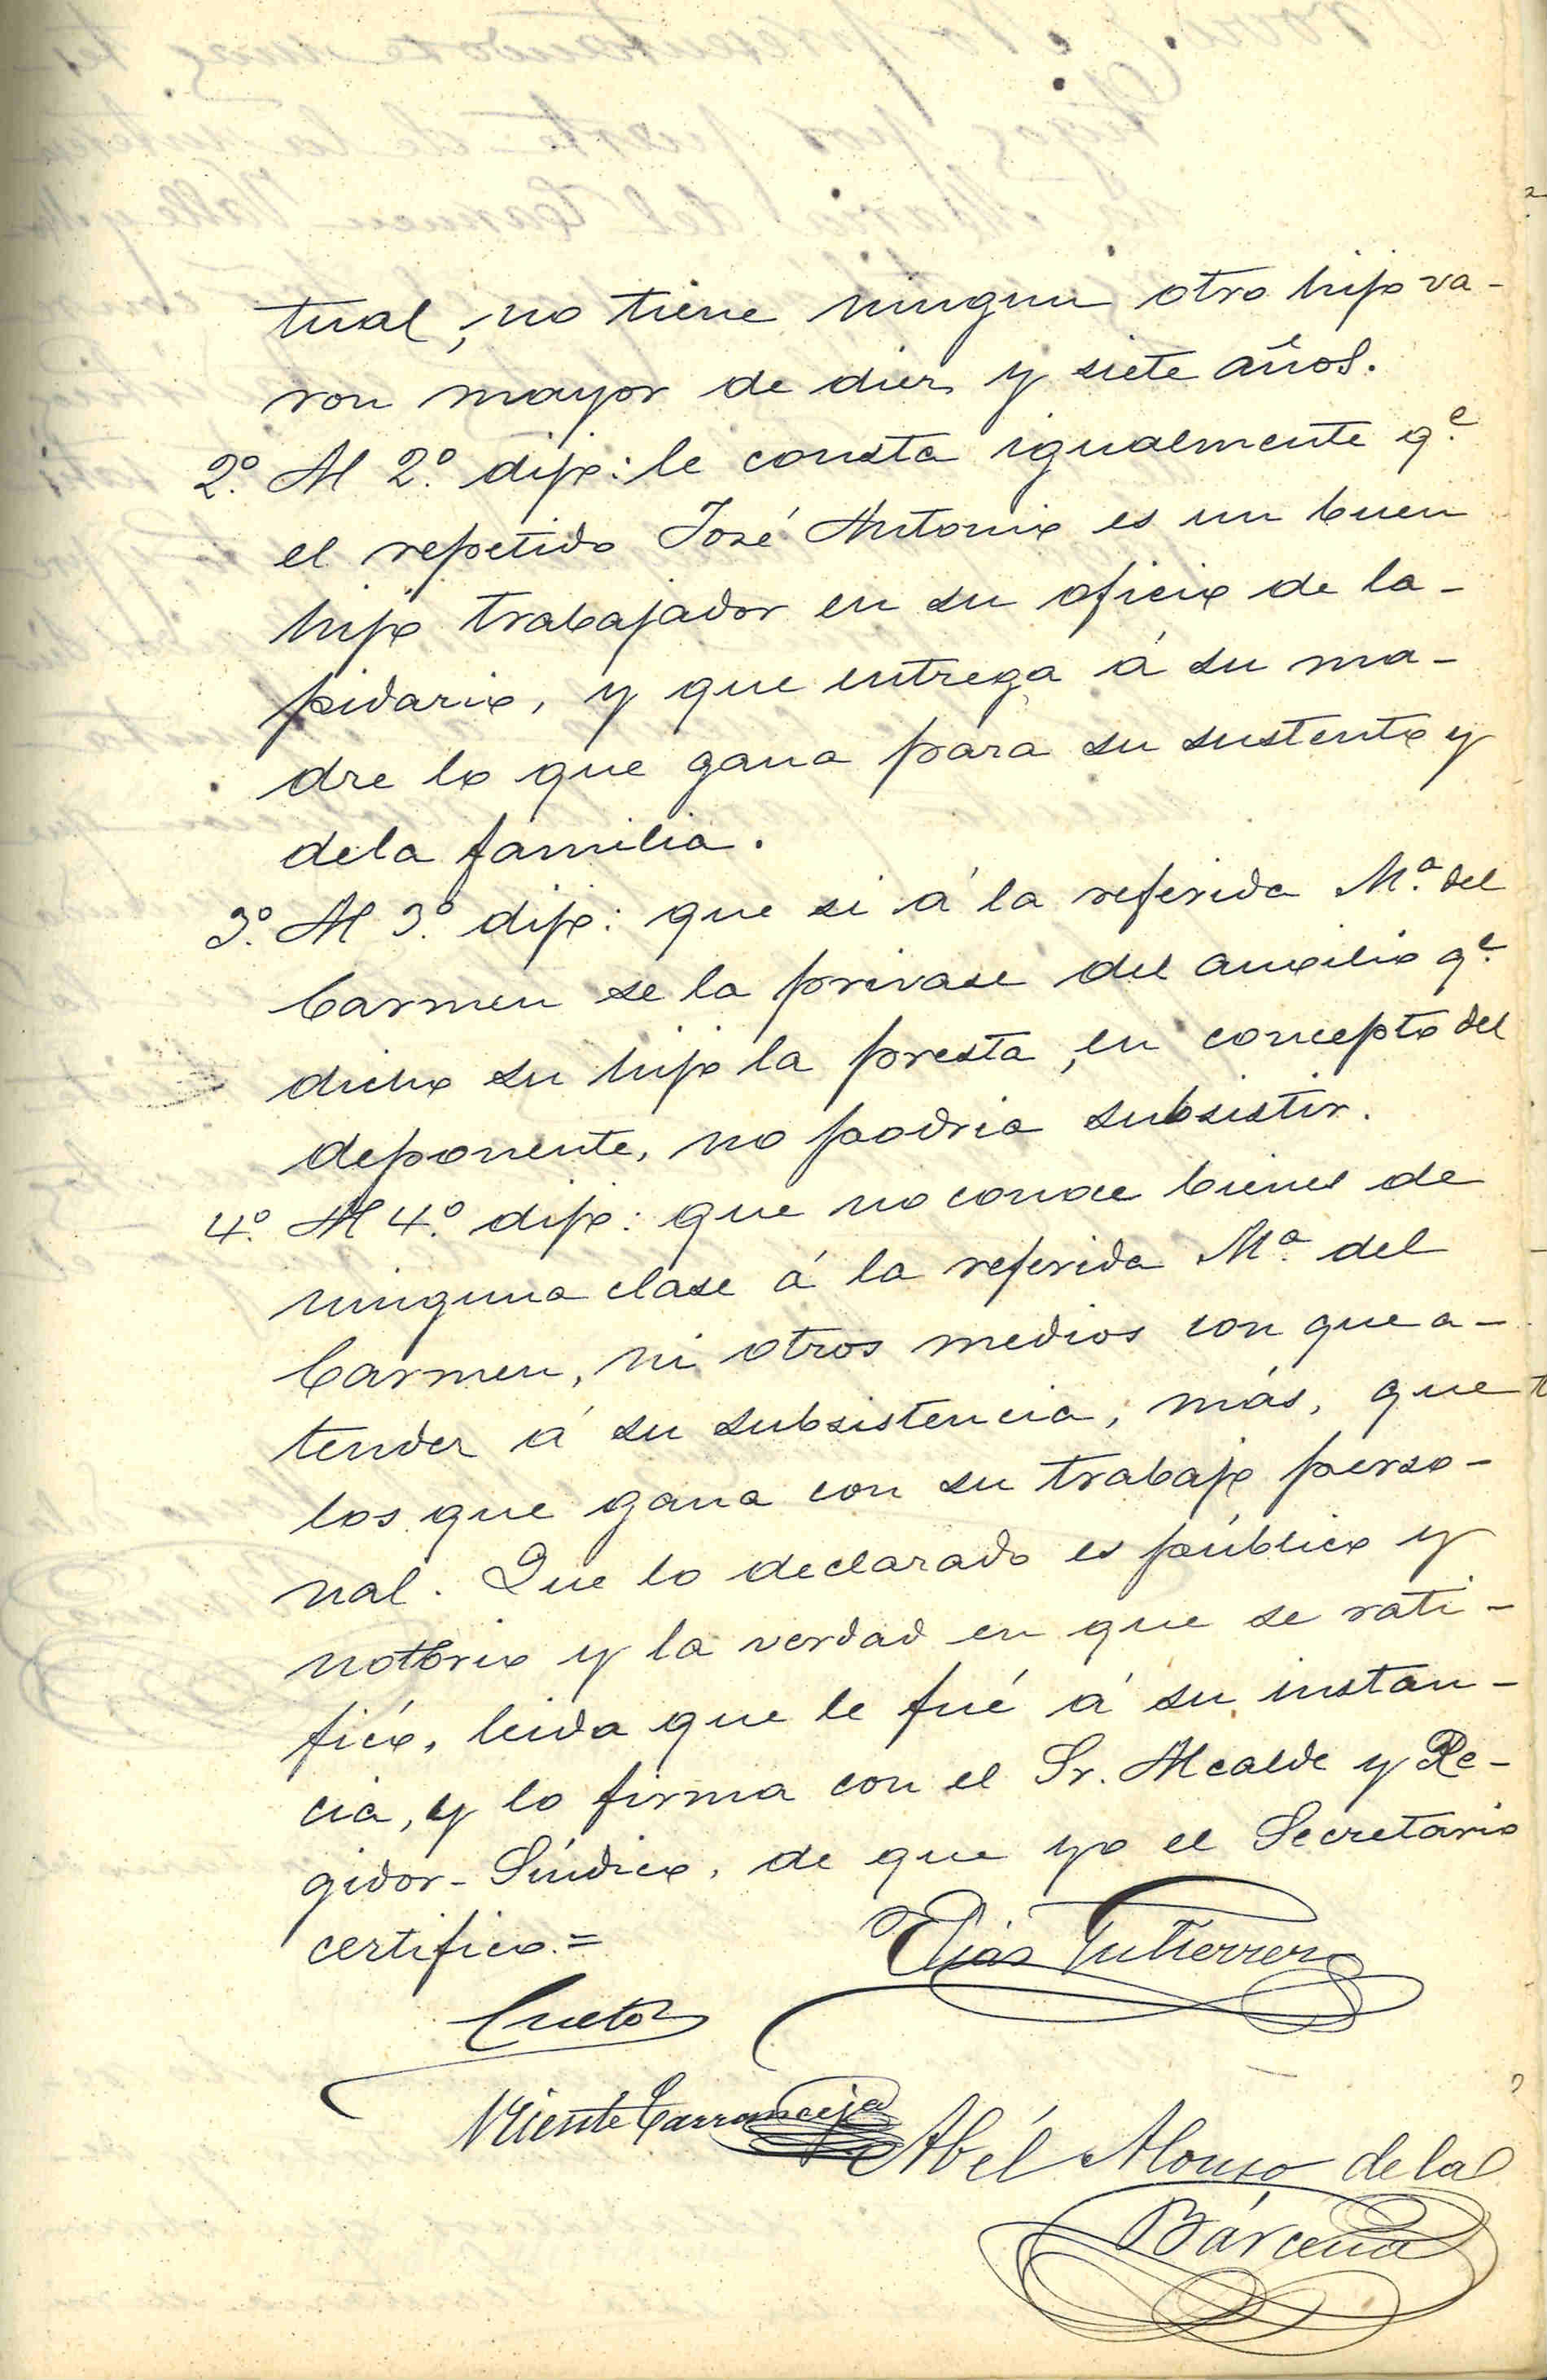 tual, no tiene ningun otro hijo va-
ron mayor de diez y siete años.
2.º Al 2.º dijo: le consta igualmente q.e
el repetido José Antonio es un buen
hijo trabajador en su oficio de la-
pidario, y que entrega á su ma-
dre lo que gana para su sustento y
dela familia.
3.º Al 3.º dijo: que si á la referida M.ª del
Carmen se la privase del auxilio q.e
dicho su hijo la presta, en concepto del
deponente, no podria subsistir.
4.º Al 4.º dijo: que no conoce bienes de
ninguna clase á la referida M.ª del
Carmen, ni otros medios con que a-
tender á su subsistencia, más, que
los que gana con su trabajo perso-
nal. Que lo declarado es público y
notorio y la verdad en que se rati-
ficó, leida que le fué á su instan-
cia, y lo firma con el Sr. Alcalde y Re-
gidor-Síndico, de que yo el Secretario
certifico.=
Elías Gutierrez
Cueto
Vicente Carranceja
Abél Alonso de la
Bárcena